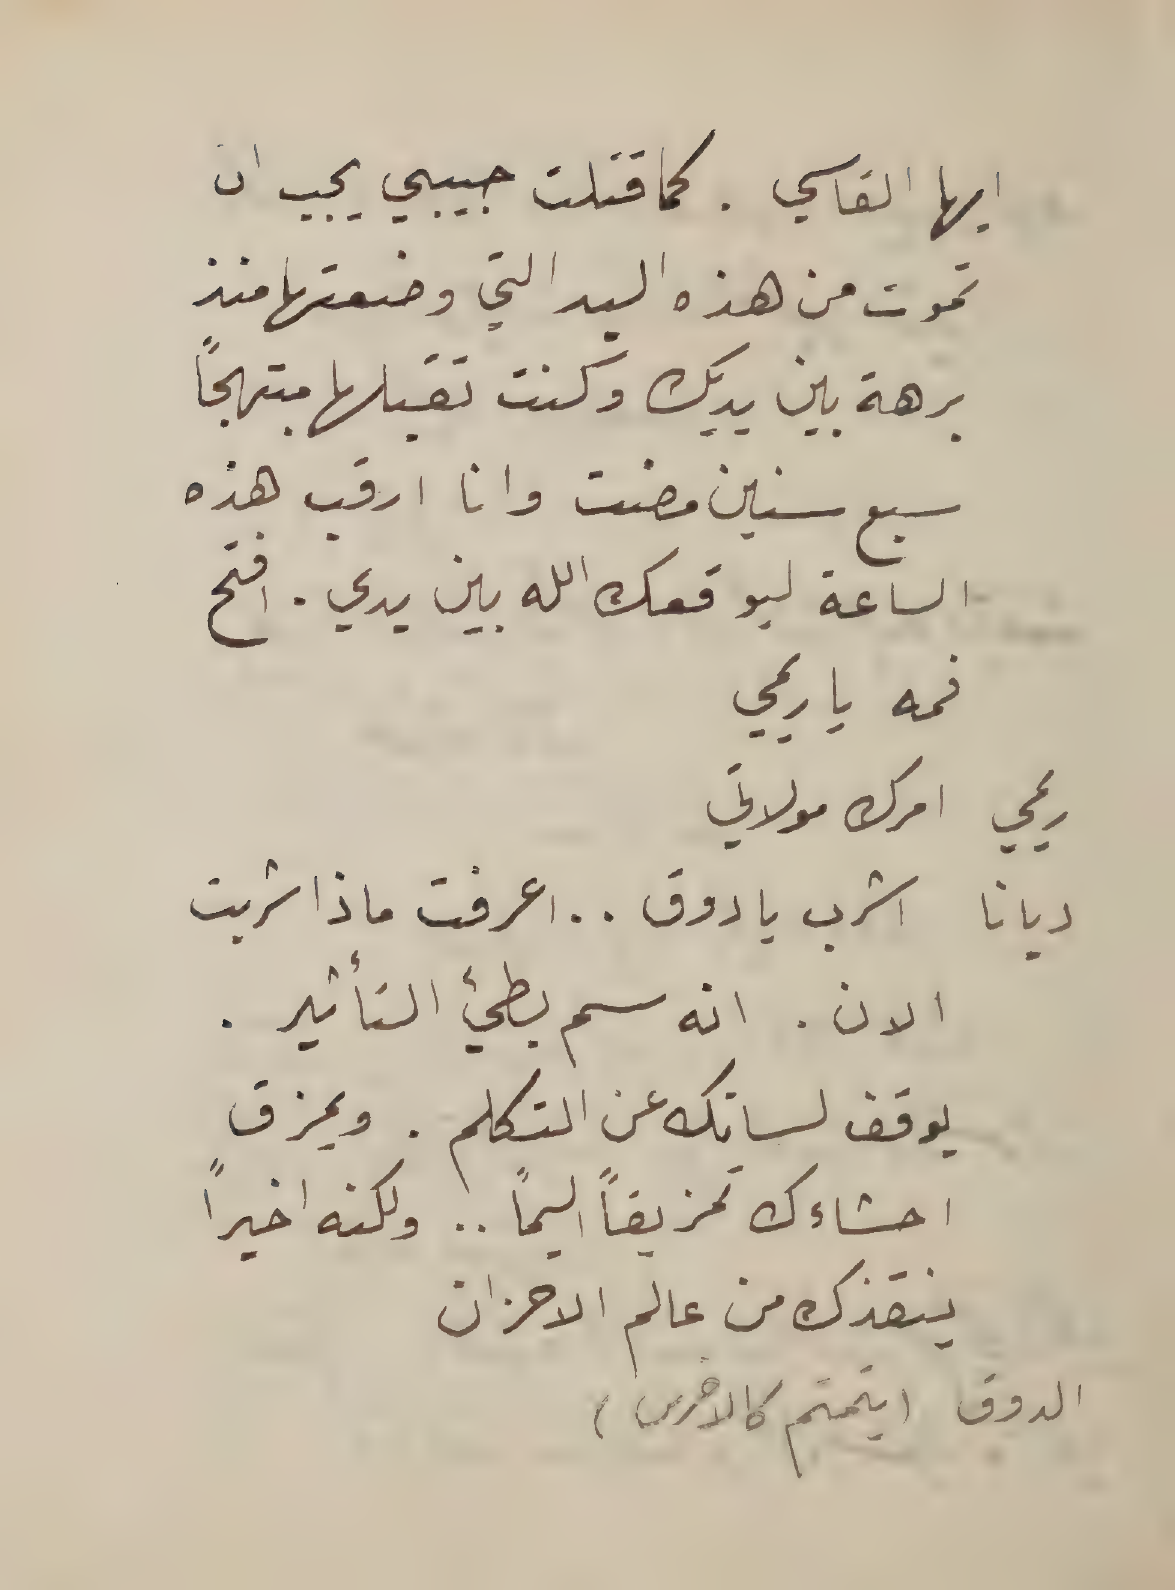 ايها القاسي . كما قتلت حبيبي يجب ان
تموت من هذه اليد التي وضعتها منذ
برهة بين يديك وكنت تقبلها مبتهجاً
سبع سنين مضت وانا ارقب هذه
الساعة ليوقعك الله بين يدي . افتح
فمه يا ريمي
ريمي امرك مولاتي
ديانا اشرب يا دوق .. اعرفت ماذا شربت
الان . انه سم بطيئ التأثير .
يوقف لسانك عن التكلم . ويمزق
احشاءك تمزيقاً اليماً .. ولكنه اخيراً
ينقذك من عالم الاحزان
الدوق (يتمتم كالاخرس)